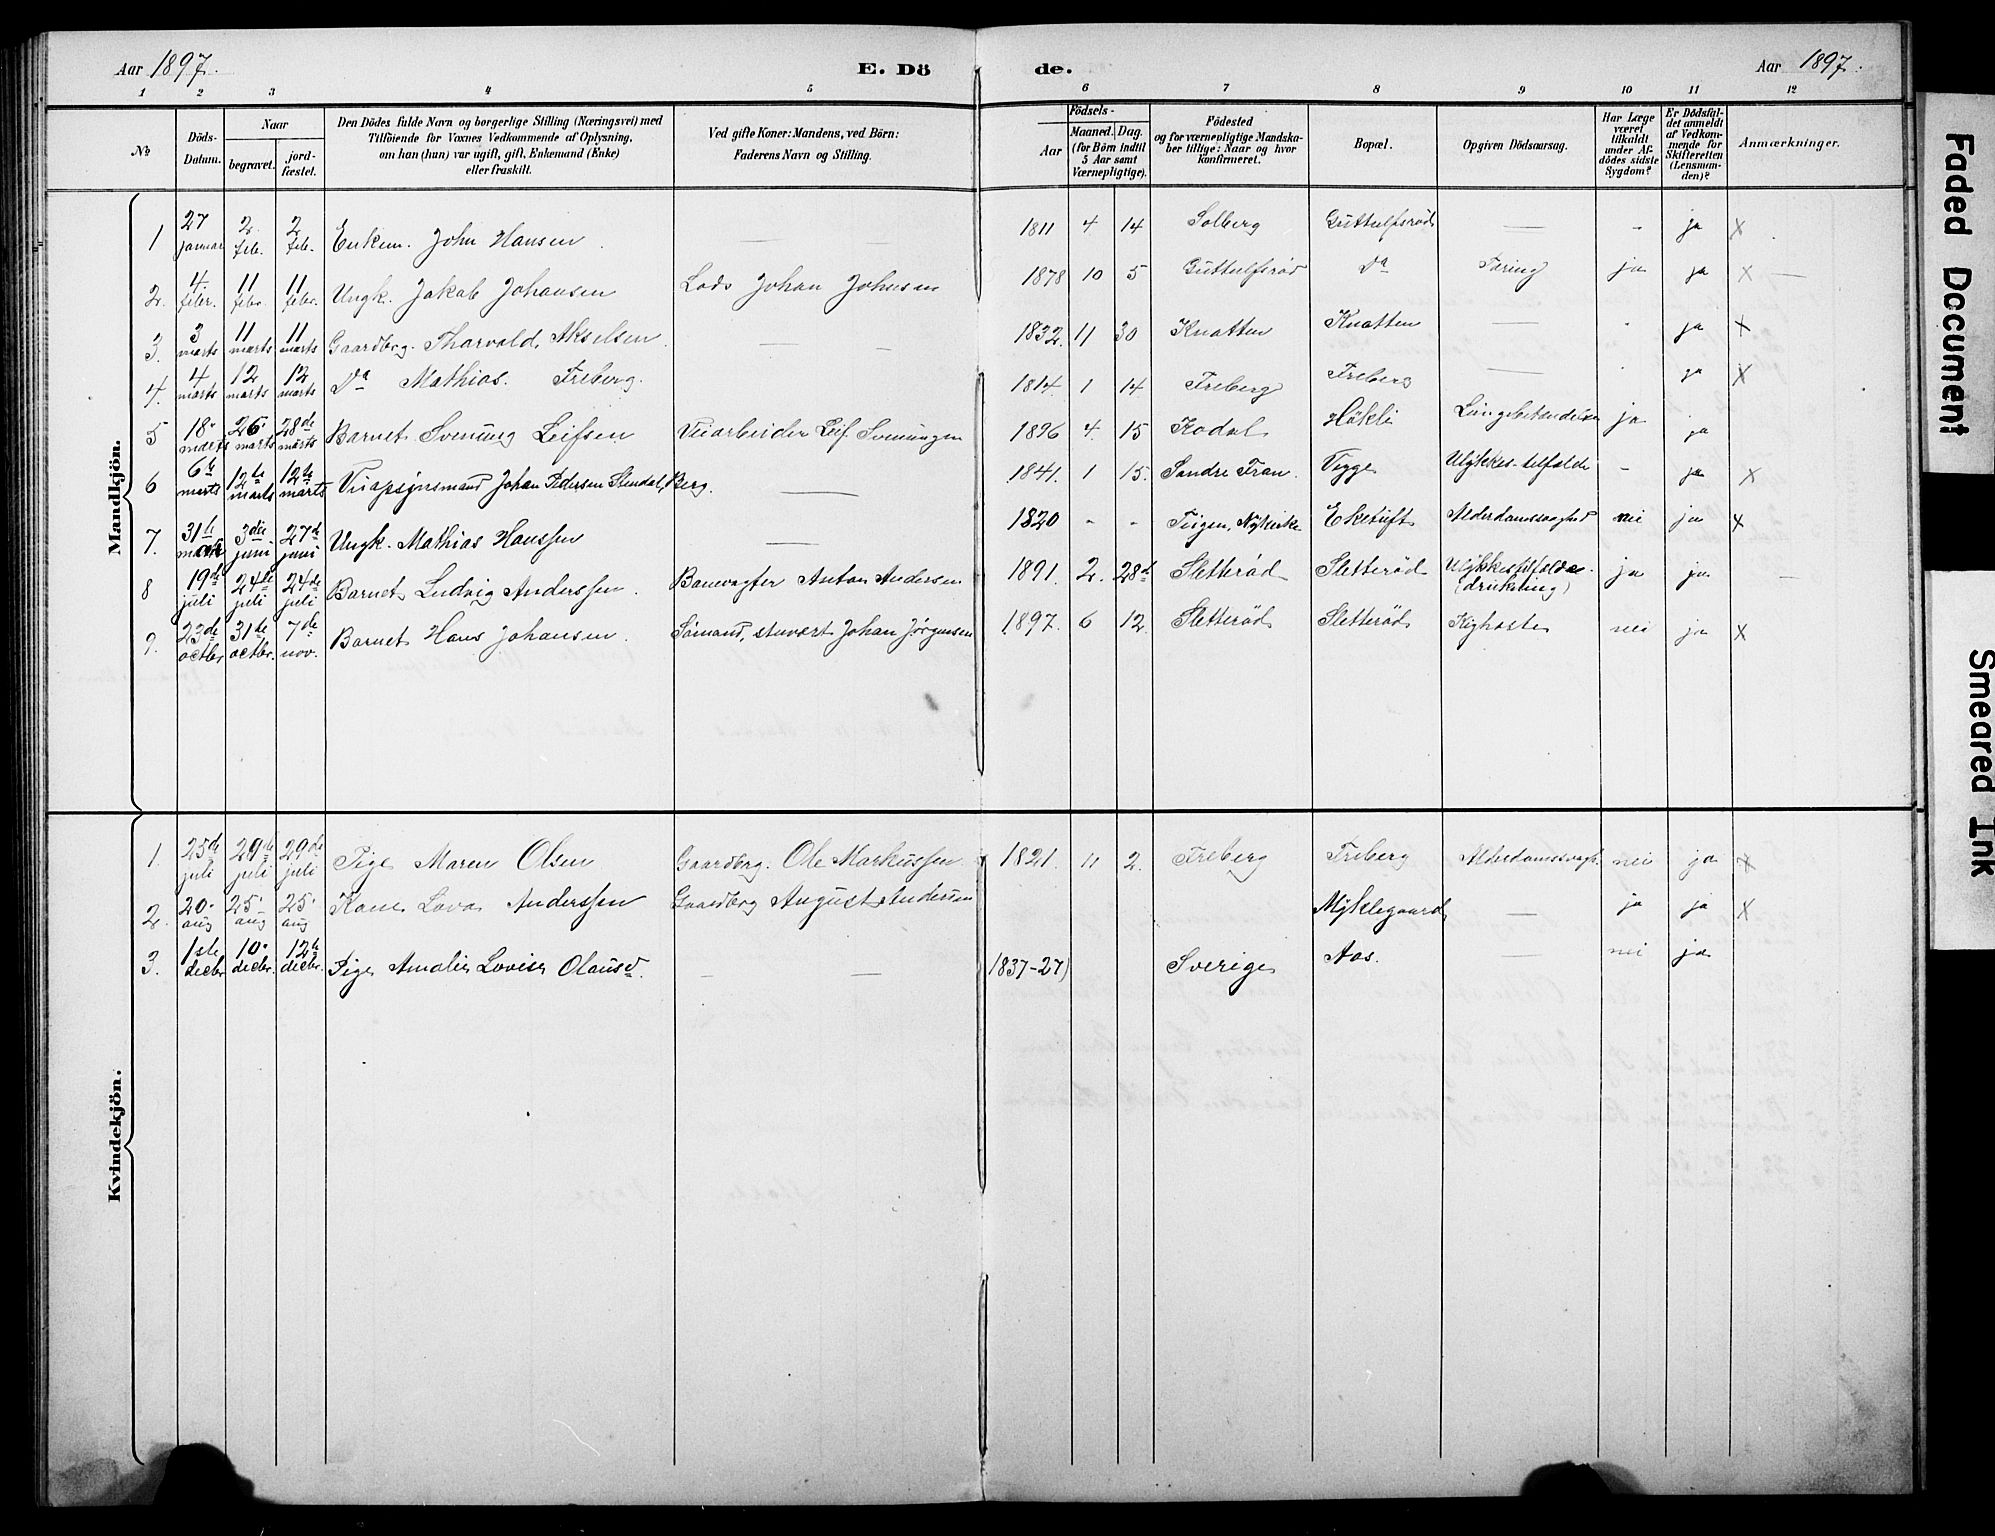 Aar 1897. E. Dö de. Aar 1897.
1 2 3 4 5 6 7 8 9 10 11 12
No. Döds-Datum. Naar begravet. jordfæstet. Den Dödes fulde Navn og borgerlige Stilling (Næringsvei) med Tilföiende for Voxnes Vedkommende af Oplysning, om han (hun) var ugift, gift, Enkemand (Enke) eller fraskilt. Ved gifte Koner: Mandens, ved Börn: Faderens Navn og Stilling. Födsels- Aar Maaned. Dag. (for Börn indtil 5 Aar samt Værnepligtige). Födested og for værnepligtige Mandskaber tillige: Naar og hvor konfirmeret. Bopæl. Opgiven Dödsaarsag. Har Læge været tilkaldt under Afdödes sidste Sygdom? Er Dödsfaldet anmeldt af Vedkommende for Skifteretten (Lensmanden)? Anmærkninger.
Mandkjön.
1 27 januar 2 feb. 2 feb. Enkem. John Hansen — — 1811 4 14 Solberg Guttulfsröd — - ja x
2. 4 febr. 11 febr. 11 febr. Ungk. Jakob Johansen Lods Johan Johnsen 1878 10 5 Guttulfsröd Da Tæring ja ja x —
3. 3 marts 11 marts 11 marts Gaardbrg. Tharvald Akselsen. — — 1832 11 30 Knatten Knatten — - ja x
4. 4 marts 12 marts 12 marts Da Mathias Freberg. 1814 1 14 Freberg Freberg — . ja x
5 18. marts 26. marts 28de marts Barnet Svenung Leifsen Veiarbeider Leif Svenungen 1896 4. 15 Kodal Hökli Lungebetændelse ja ja
6 6te marts 12te marts 12te marts Johan Pedersen Stendal, Berg. — 1841. 1 15. Sandre Fran. Tygge Ulykkes-tilfælde - ja x
7. 31te marts 3die juni 27de juni Ungk. Mathias Hanssen — 1820 - - Nykirke Eketuft Alderdomssvaghed nei ja x
8 19de juli 24de juli 24de juli Barnet Ludvig Anderssen. Banevogter Anton Andersen 1891 2. 28de Sletteröd Sletteröd Ulykkestilfælde (drukning) ja ja —
9. 23de octbr 31te octbr. 7de nov. Barnet Hans Johansen. Sömand, stuvart Johan Jørgensen 1897. 6 12. Sletteröd Sletteröd Kighoste nei ja x
Kvindekjön.
1. 25de juli 29de juli 29de juli Pige Maren Olsen Gaardbrg. Ole Markussen 1821. 11 2. Freberg Freberg Alderdomssvagh. nei ja x
2. 20. aug 25. aug 25. aug Kone Lova Anderssen Gaardbrg August Andersen Myklegaard — ja ja x
3. 1ste decbr 10. decbr. 12te decbr. Pige Amalie Lovise Olausd. — — 1837-27) Sverige Aas. — nei ja
Faded Document
Smeared Ink